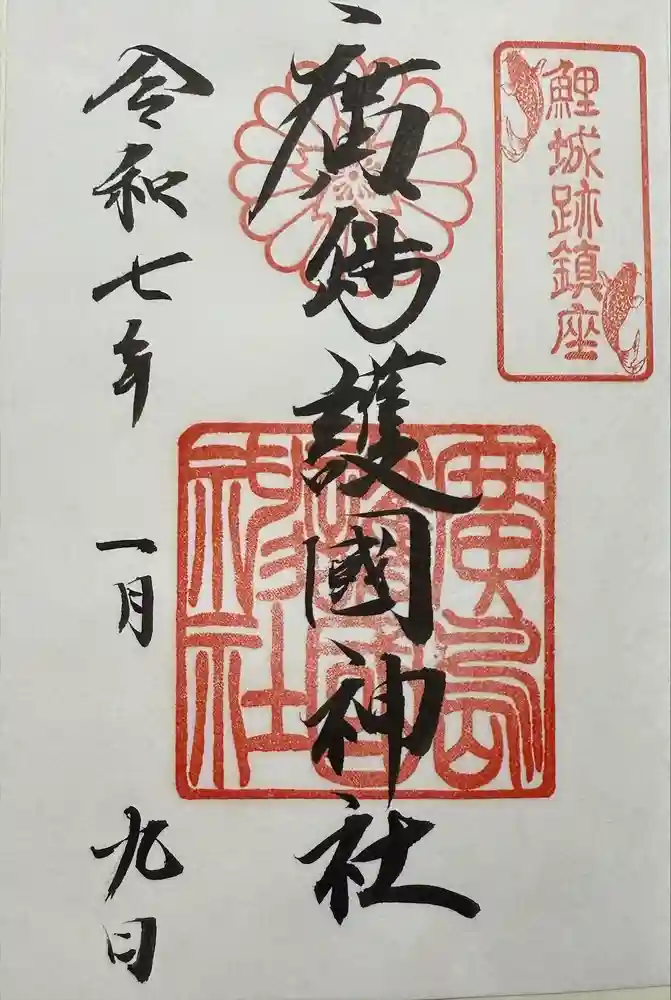 鯉城跡鎮座
廣島護國神社
廣島
護國
神社
令和七年 一月 九日